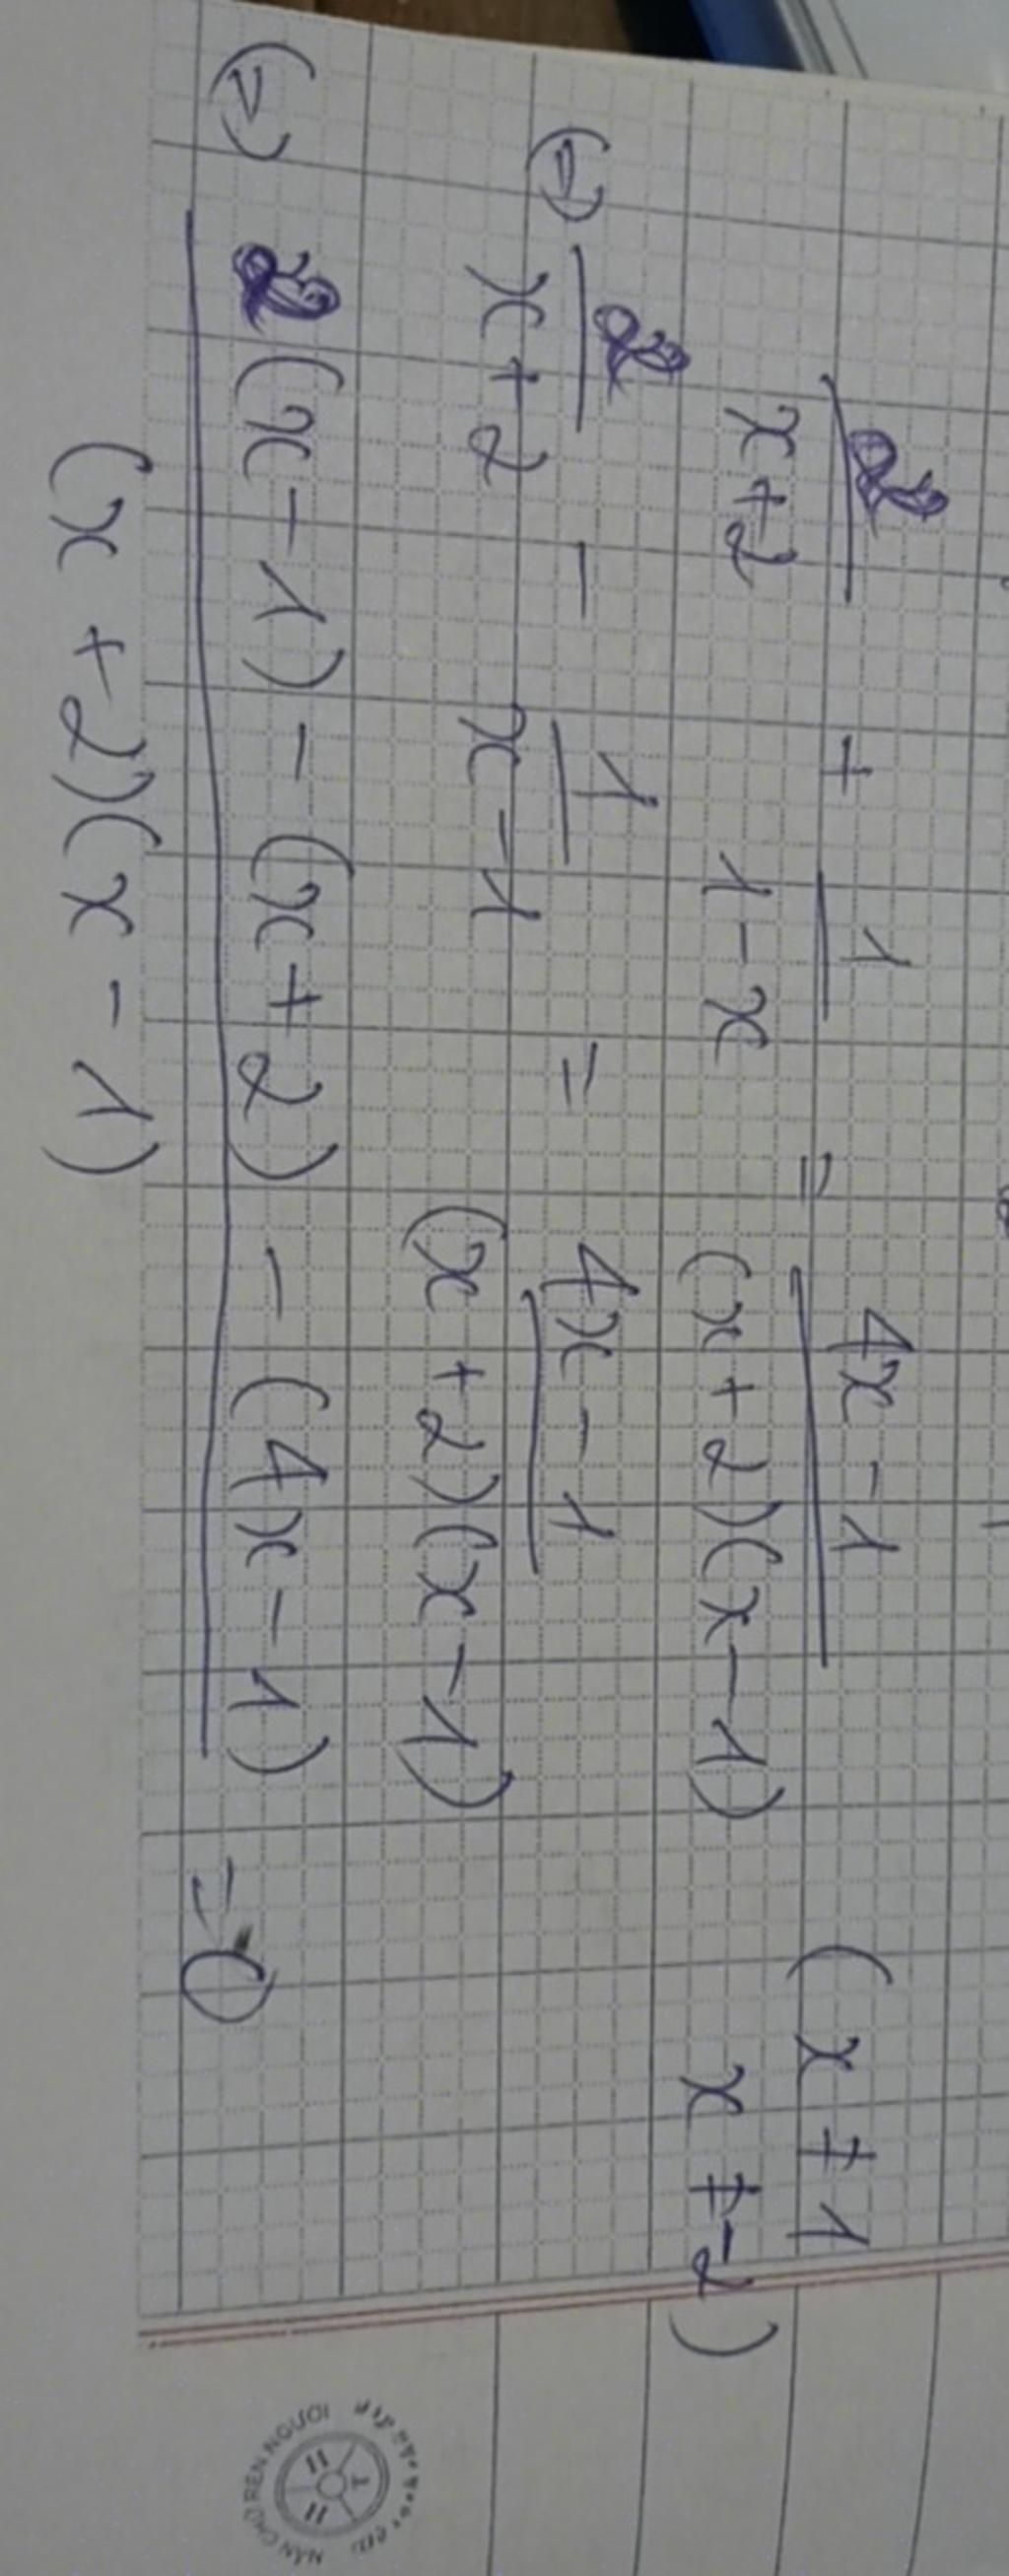 2/(x+2) + 1/(1-x) = (4x-1)/((x+2)(x-1)) (x ≠ 1
x ≠ -2)
(=) 2/(x+2) - 1/(x-1) = (4x-1)/((x+2)(x-1))
(=) (2(x-1) - (x+2) - (4x-1))/((x+2)(x-1)) = 0
NÉT CHỮ RÈN NGƯỜI